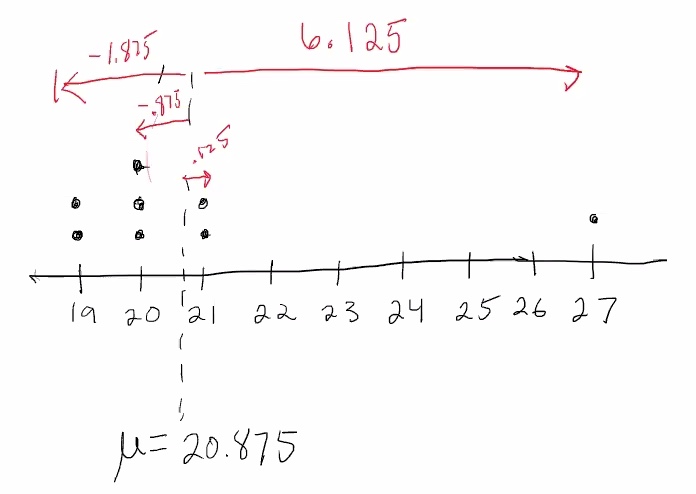 -1.875 6.125
-.875
.125
19 20 21 22 23 24 25 26 27
μ= 20.875